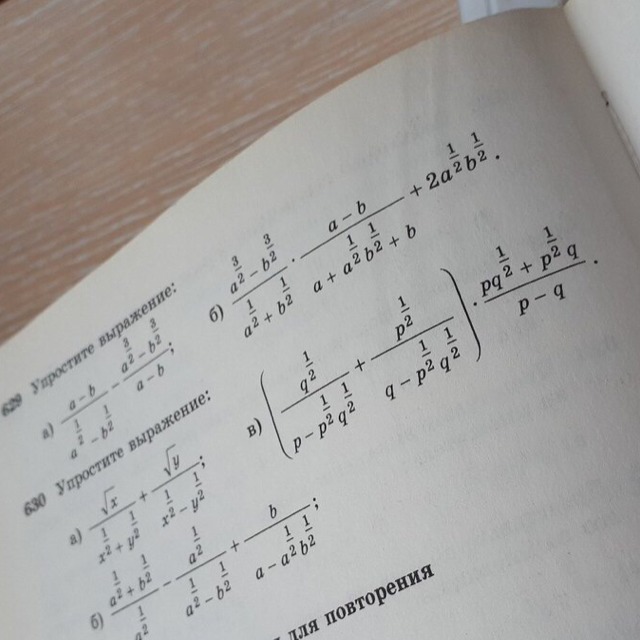 629 Упростите выражение:
а) (a − b)/(a^(1/2) − b^(1/2)) − (a^(3/2) − b^(3/2))/(a − b);
б) (a^(3/2) − b^(3/2))/(a^(1/2) + b^(1/2)) · (a − b)/(a + a^(1/2)b^(1/2) + b) + 2a^(1/2)b^(1/2).
630 Упростите выражение:
а) √x/(x^(1/2) + y^(1/2)) + √y/(x^(1/2) − y^(1/2));
б) (a^(1/2) + b^(1/2))/a^(1/2) − a^(1/2)/(a^(1/2) − b^(1/2)) + b/(a − a^(1/2)b^(1/2));
в) (q^(1/2)/(p − p^(1/2)q^(1/2)) + p^(1/2)/(q − p^(1/2)q^(1/2))) · (pq^(1/2) + p^(1/2)q)/(p − q).
для повторения